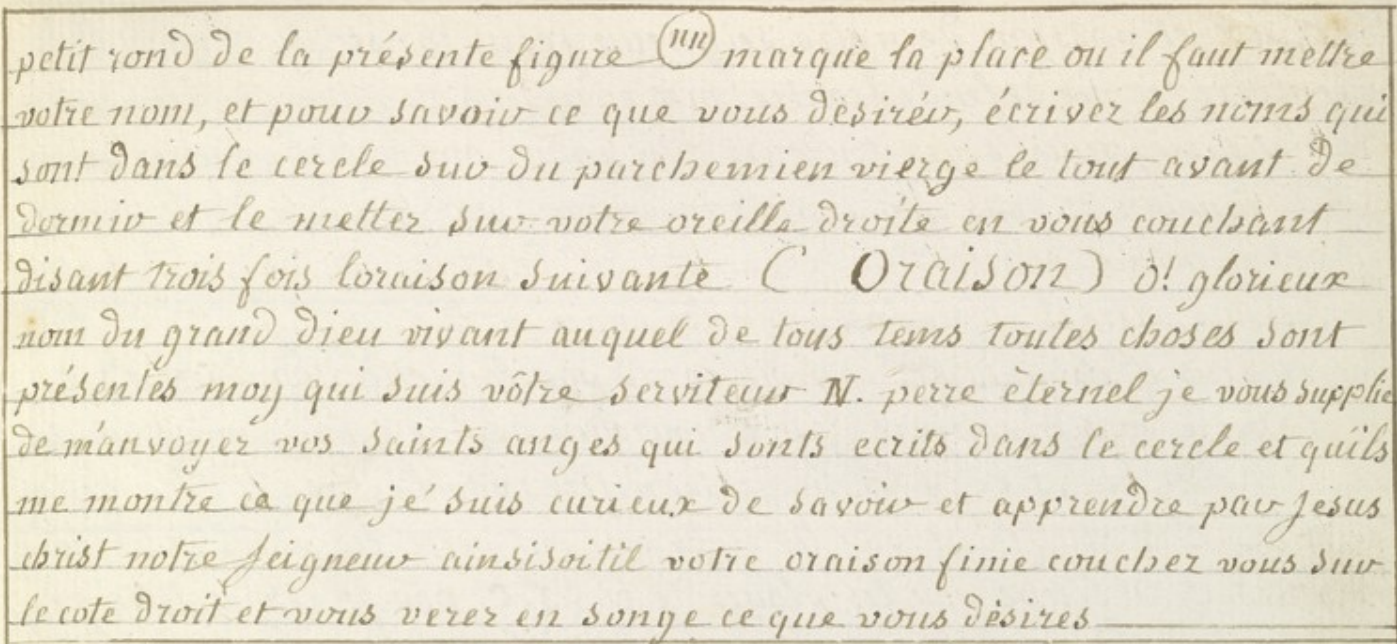 petit rond de la présente figure (nn) marque la place ou il faut mettre
votre nom, et pour savoir ce que vous desirér, écrivez les noms qui
sont dans le cercle sur du parchemien vierge le tout avant de
dormir et le metter sur votre oreille droite en vous couchant
disant trois fois loraison suivante ( Oraison ) o! glorieux
nom du grand dieu vivant auquel de tous tems toutes choses sont
présentes moy qui suis vôtre serviteur N. perre èternel je vous supplie
de m'anvoyer vos saints anges qui sonts ecrits dans le cercle et qu'ils
me montre ce que je suis curieux de savoir et apprendre par Jesus
christ notre Seigneur ainsisoitil votre oraison finie couchez vous sur
le cote droit et vous verez en songe ce que vous dèsires